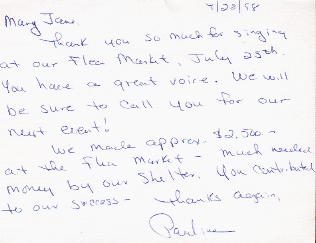 7/28/98
Mary Jane,
Thank you so much for singing
at our Flea Market, July 25th.
You have a great voice. We will
be sure to call you for our
next event!
We made approx. $2,500 -
at the Flea Market - much needed
money by our Shelter. You contributed
to our success - thanks again,
Pauline